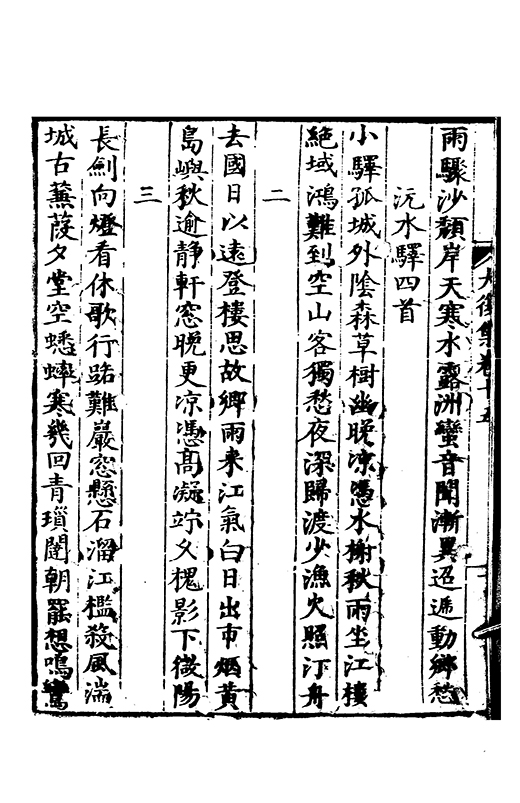 雨驟沙頹岸天寒水露洲蠻音聞漸異迢遞動鄉愁
沅水驛四首
小驛孤城外陰森草樹幽晚凉憑水榭秋雨坐江樓
絕域鴻難到空山客獨愁夜深歸渡少漁火照汀舟
二
去國日以遠登樓思故鄉雨来江氣白日出市烟黄
島嶼秋逾静軒窓晚更凉憑髙凝竚久槐影下微陽
三
長劍向燈看休歌行路難巖窓懸石溜江檻殺風湍
城古蕪葭夕堂空蟋蟀寒幾回青瑣闥朝罷想鳴鸞
大復集卷十五